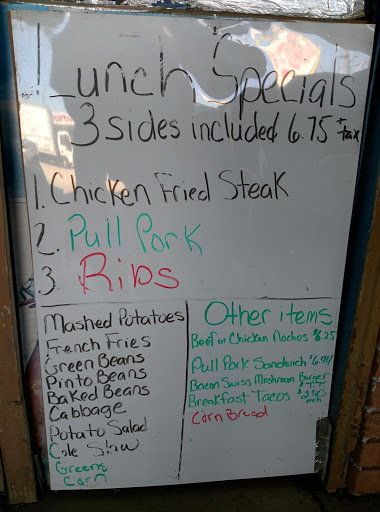 Lunch Specials
3 sides included 6.75 + tax
1. Chicken Fried Steak
2. Pull Pork
3. Ribs
Mashed Potatoes
French Fries
Green Beans
Pinto Beans
Baked Beans
Cabbage
Potato Salad
Cole Slaw
Greens
Corn
Other items
Beef or Chicken Nachos $6.25
Pull Pork Sandwich $6.94
Bacon Swiss Mushroom Burger
Breakfast Tacos $2.50 each
Corn Bread